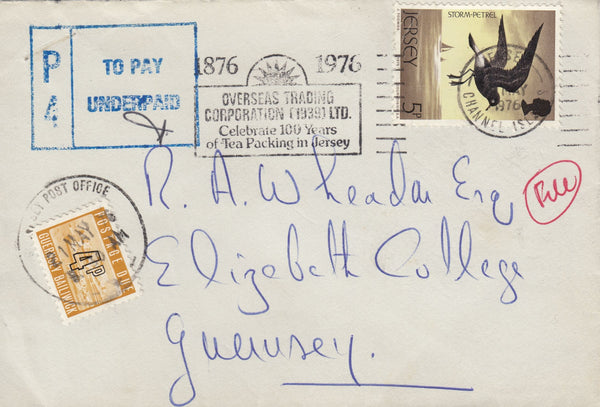 P
4
TO PAY
UNDERPAID
1876 1976
OVERSEAS TRADING
CORPORATION (1939) LTD.
Celebrate 100 Years
of Tea Packing in Jersey
STORM-PETREL
JERSEY
5P
MAY
1976
CHANNEL ISL
POST OFFICE
MAY
POSTAGE DUE
4P
GUERNSEY BAILIWICK
R. A. Wheadon Esq
Elizabeth College
Guernsey.